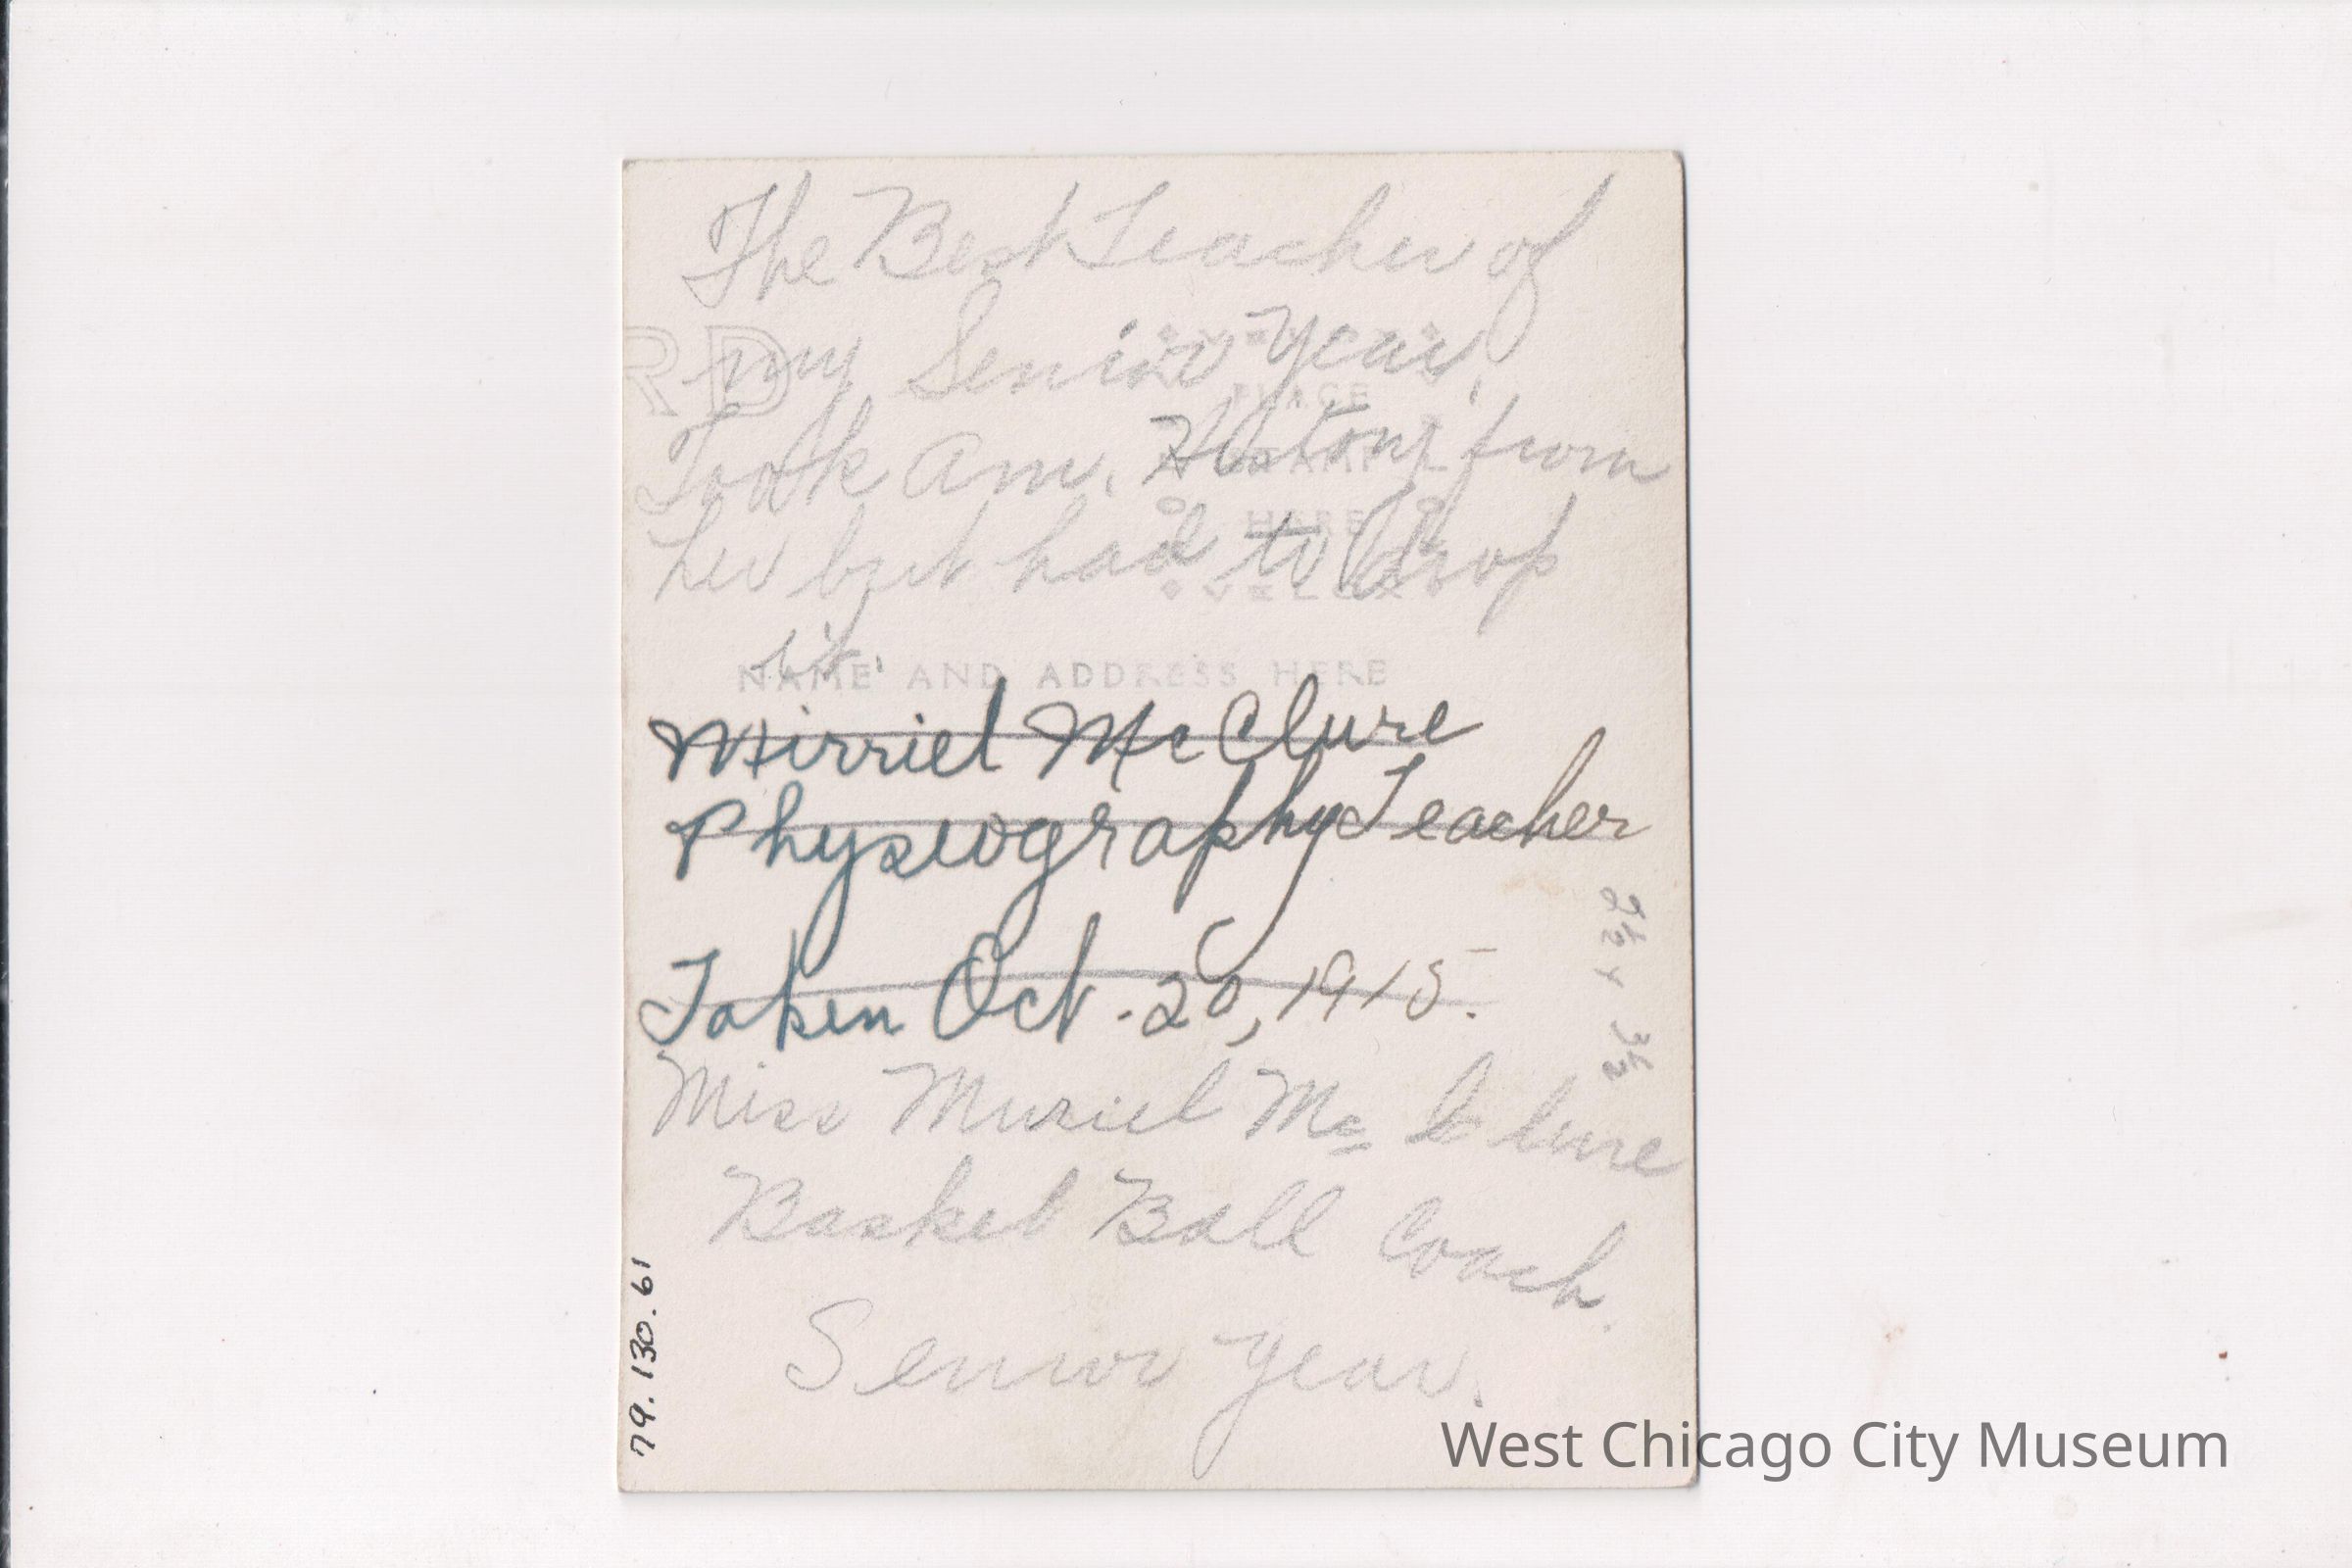 The Best Teacher of
my Senior Year.
Took Am. History from
her but had to drop
it.
RD
PLACE
HERE
VELOX
NAME AND ADDRESS HERE
Mirriel McClure
Physiography Teacher
Taken Oct. 20, 1915.
Miss Muriel Mc Clure
Basket Ball Coach.
Senior Year.
2½ x 3½
79.130.61
West Chicago City Museum